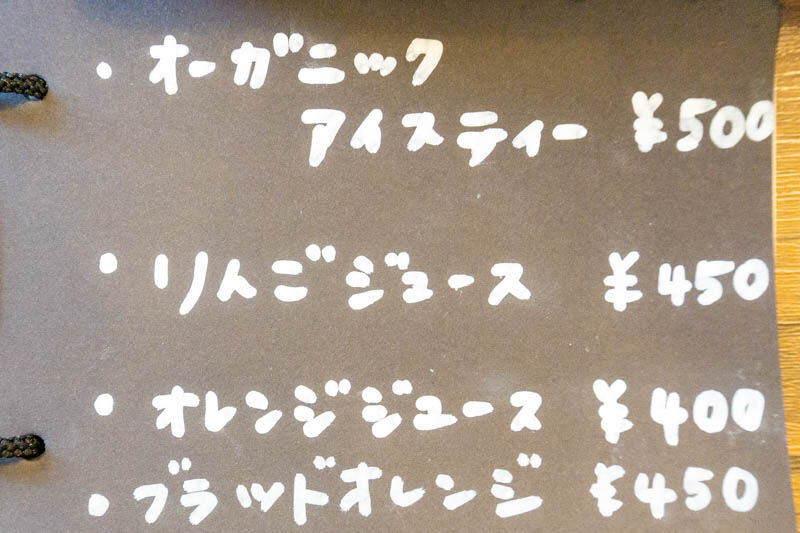 ・オーガニック
アイスティー ¥500
・りんごジュース ¥450
・オレンジジュース ¥400
・ブラッドオレンジ ¥450